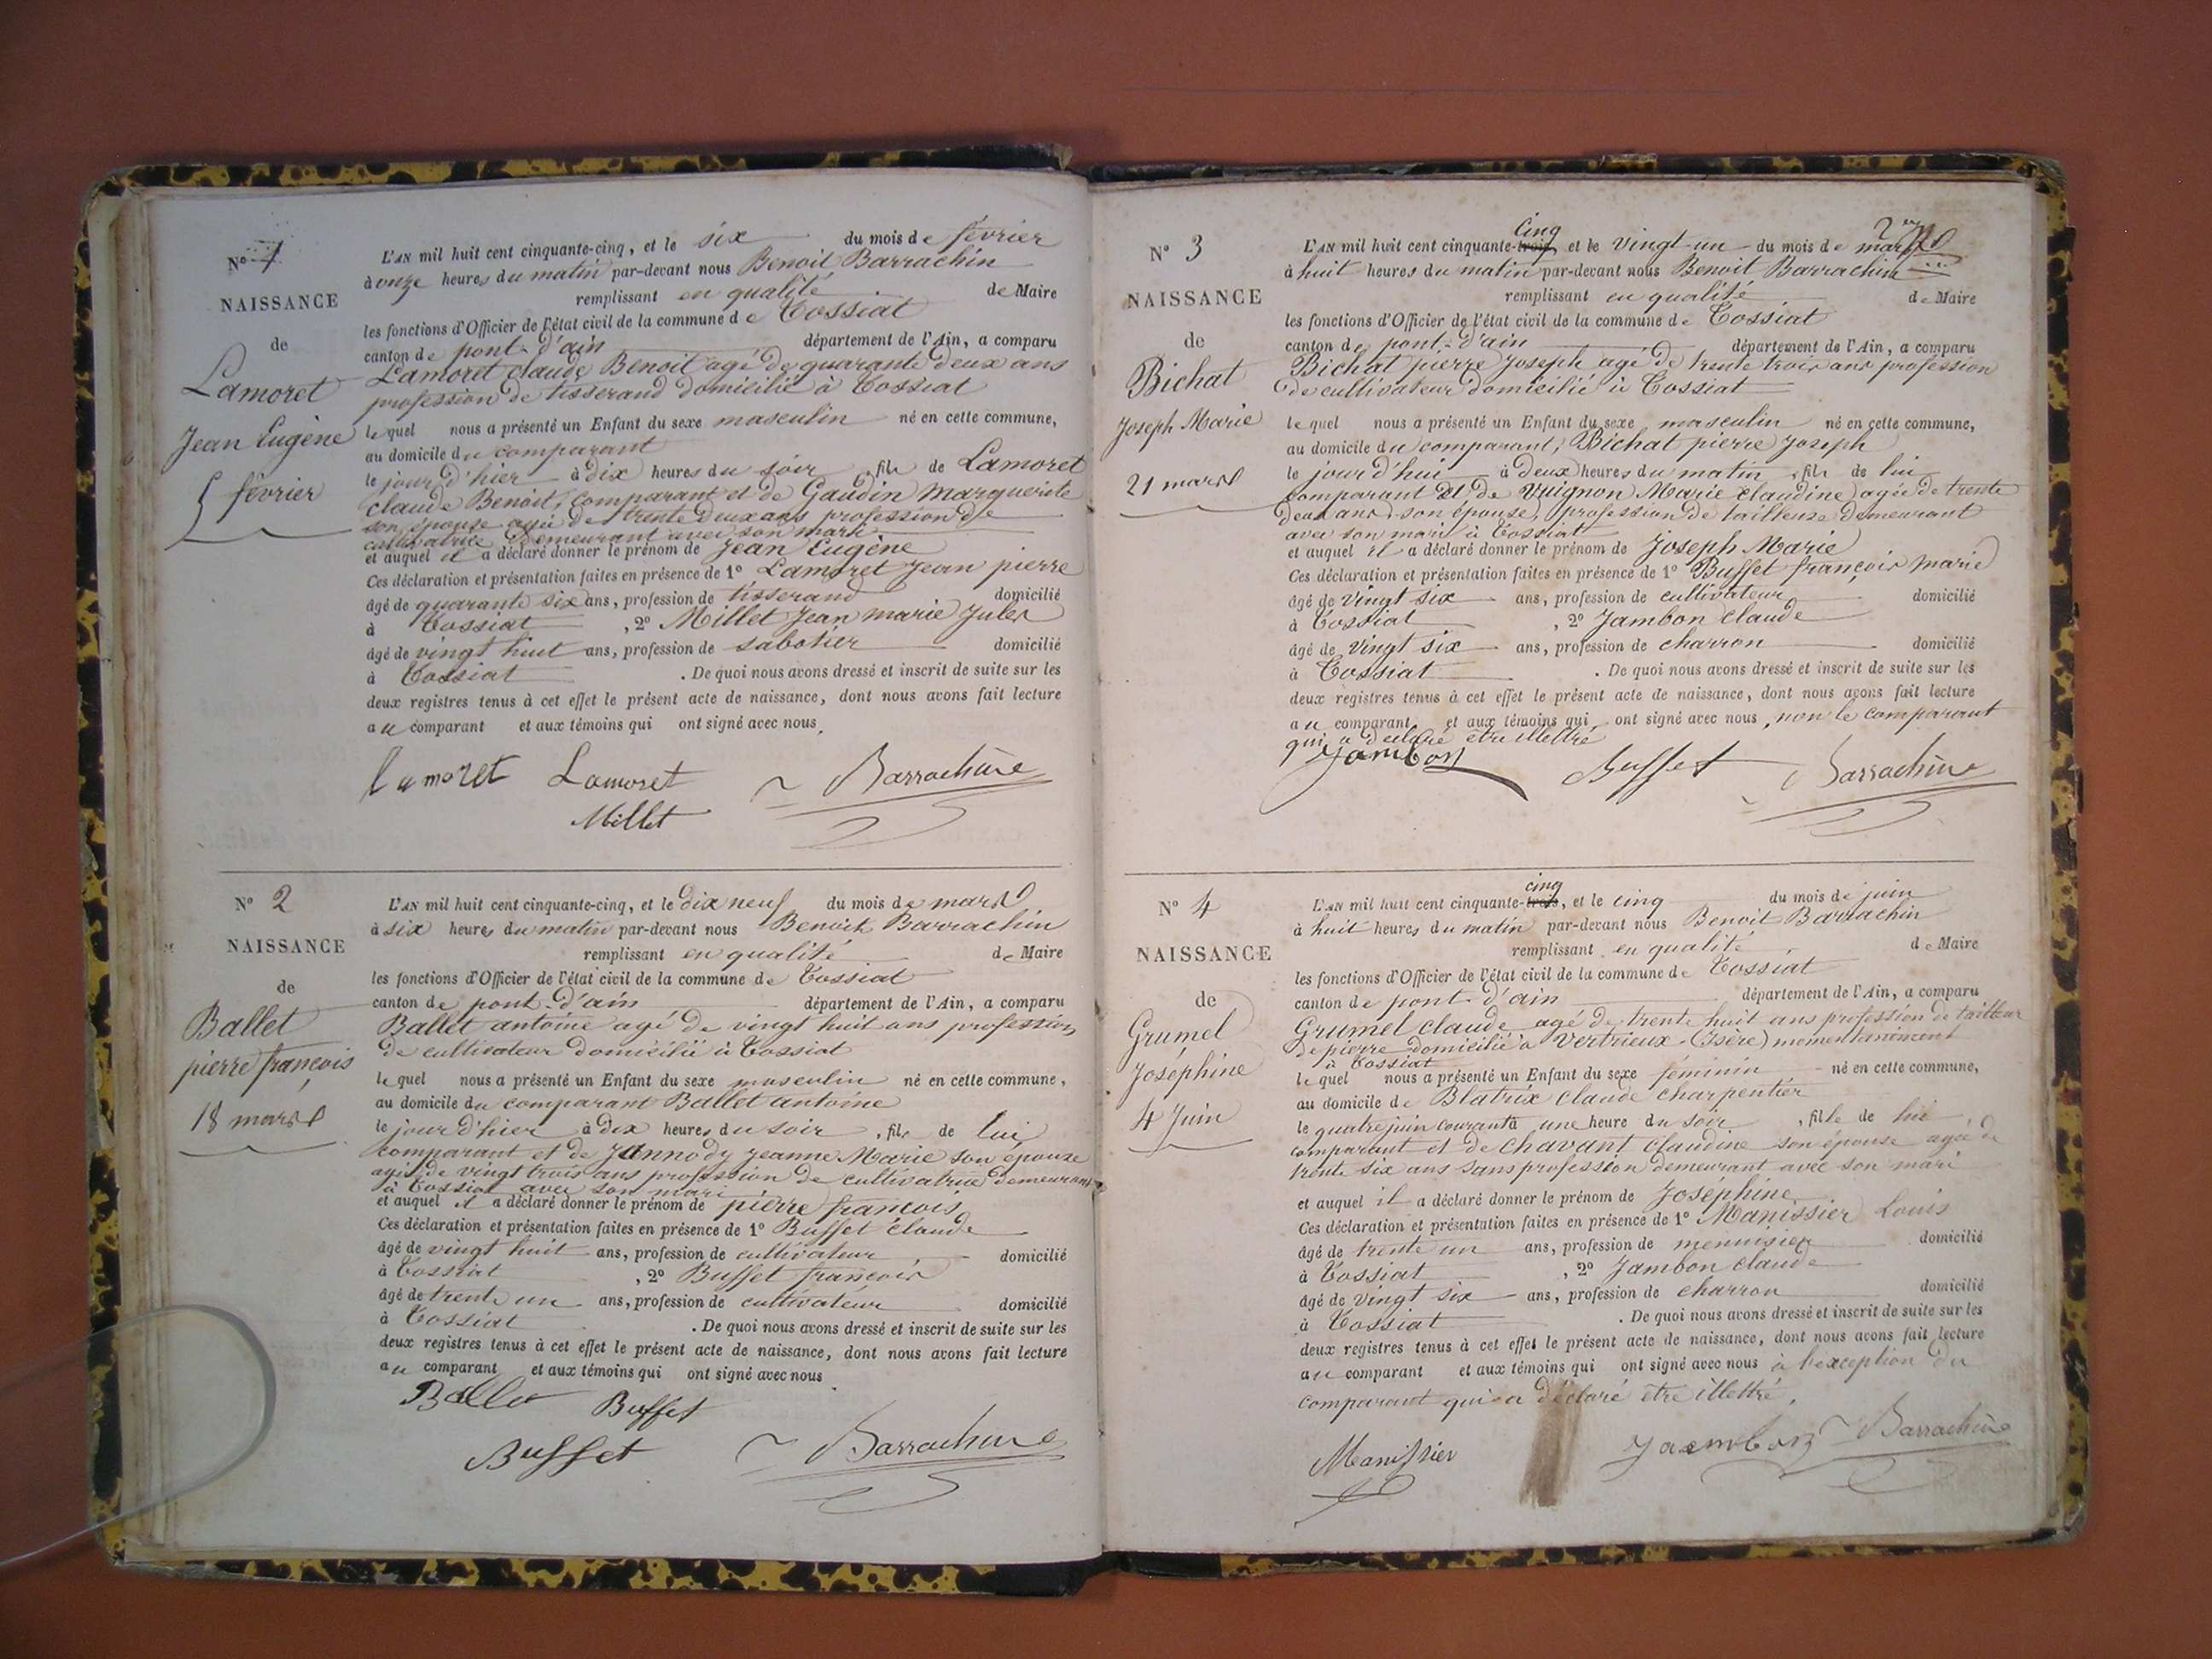 N° 1
NAISSANCE
de
Lamoret
Jean Eugène
5 février
L'AN mil huit cent cinquante-cinq, et le six du mois de février
à onze heures du matin par-devant nous Benoit Barrachin
remplissant en qualité de Maire
les fonctions d'Officier de l'état civil de la commune de Tossiat
canton de pont-d'ain département de l'Ain, a comparu
Lamoret claude Benoit agé de quarante deux ans
profession de tisserand domicilié à Tossiat
lequel nous a présenté un Enfant du sexe masculin né en cette commune,
au domicile du comparant
le jour d'hier à dix heures du soir, fils de Lamoret
claude Benoit, comparant et de Gaudin Marguerite
son épouse agée de trente deux ans profession de
cultivatrice demeurant avec son mari
et auquel il a déclaré donner le prénom de Jean Eugène
Ces déclaration et présentation faites en présence de 1° Lamoret Jean pierre
âgé de quarante six ans, profession de tisserand domicilié
à Tossiat, 2° Millet Jean marie Jules
âgé de vingt huit ans, profession de sabotier domicilié
à Tossiat. De quoi nous avons dressé et inscrit de suite sur les
deux registres tenus à cet effet le présent acte de naissance, dont nous avons fait lecture
au comparant et aux témoins qui ont signé avec nous.
lamoret Lamoret Barrachin
Millet
N° 2
NAISSANCE
de
Ballet
pierre françois
18 mars
L'AN mil huit cent cinquante-cinq, et le dix neuf du mois de mars
à six heures du matin par-devant nous Benoit Barrachin
remplissant en qualité de Maire
les fonctions d'Officier de l'état civil de la commune de Tossiat
canton de pont-d'ain département de l'Ain, a comparu
Ballet antoine agé de vingt huit ans profession
de cultivateur domicilié à Tossiat
lequel nous a présenté un Enfant du sexe masculin né en cette commune,
au domicile du comparant Ballet antoine
le jour d'hier à dix heures du soir, fils de lui
comparant et de Jannody jeanne Marie son épouse
agée de vingt trois ans profession de cultivatrice demeurant
à Tossiat avec son mari
et auquel il a déclaré donner le prénom de pierre françois
Ces déclaration et présentation faites en présence de 1° Buffet claude
âgé de vingt huit ans, profession de cultivateur domicilié
à Tossiat, 2° Buffet françois
âgé de trente un ans, profession de cultivateur domicilié
à Tossiat. De quoi nous avons dressé et inscrit de suite sur les
deux registres tenus à cet effet le présent acte de naissance, dont nous avons fait lecture
au comparant et aux témoins qui ont signé avec nous.
Ballet Buffet
Buffet Barrachin
N° 3
NAISSANCE
de
Bichat
Joseph Marie
21 mars
cinq
L'AN mil huit cent cinquante-trois, et le vingt un du mois de mars
à huit heures du matin par-devant nous Benoit Barrachin
remplissant en qualité de Maire
les fonctions d'Officier de l'état civil de la commune de Tossiat
canton de pont-d'ain département de l'Ain, a comparu
Bichat pierre Joseph agé de trente trois ans profession
de cultivateur domicilié à Tossiat
lequel nous a présenté un Enfant du sexe masculin né en cette commune,
au domicile du comparant, Bichat pierre Joseph
le jour d'hui à deux heures du matin, fils de lui
comparant et de Vuignon Marie claudine agée de trente
deux ans son épouse, profession de tailleuse demeurant
avec son mari à Tossiat
et auquel il a déclaré donner le prénom de Joseph Marie
Ces déclaration et présentation faites en présence de 1° Buffet françois Marie
âgé de vingt six ans, profession de cultivateur domicilié
à Tossiat, 2° Jambon claude
âgé de vingt six ans, profession de charron domicilié
à Tossiat. De quoi nous avons dressé et inscrit de suite sur les
deux registres tenus à cet effet le présent acte de naissance, dont nous avons fait lecture
au comparant et aux témoins qui ont signé avec nous, non le comparant
qui a déclaré être illettré
Jambon Buffet Barrachin
N° 4
NAISSANCE
de
Grumel
Joséphine
4 Juin
cinq
L'AN mil huit cent cinquante-trois, et le cinq du mois de juin
à huit heures du matin par-devant nous Benoit Barrachin
remplissant en qualité de Maire
les fonctions d'Officier de l'état civil de la commune de Tossiat
canton de pont-d'ain département de l'Ain, a comparu
Grumel claude agé de trente huit ans profession de tailleur
de pierre domicilié à Vertrieux (Isère) momentanément
à Tossiat
lequel nous a présenté un Enfant du sexe féminin né en cette commune,
au domicile de Blatrix claude charpentier
le quatre juin courant à une heure du soir, fille de lui
comparant et de chavant claudine son épouse agée de
trente six ans sans profession demeurant avec son mari
et auquel il a déclaré donner le prénom de Joséphine
Ces déclaration et présentation faites en présence de 1° Manissier Louis
âgé de trente un ans, profession de menuisier domicilié
à Tossiat, 2° Jambon claude
âgé de vingt six ans, profession de charron domicilié
à Tossiat. De quoi nous avons dressé et inscrit de suite sur les
deux registres tenus à cet effet le présent acte de naissance, dont nous avons fait lecture
au comparant et aux témoins qui ont signé avec nous à l'exception du
comparant qui a déclaré être illettré.
Manissier Jambon Barrachin